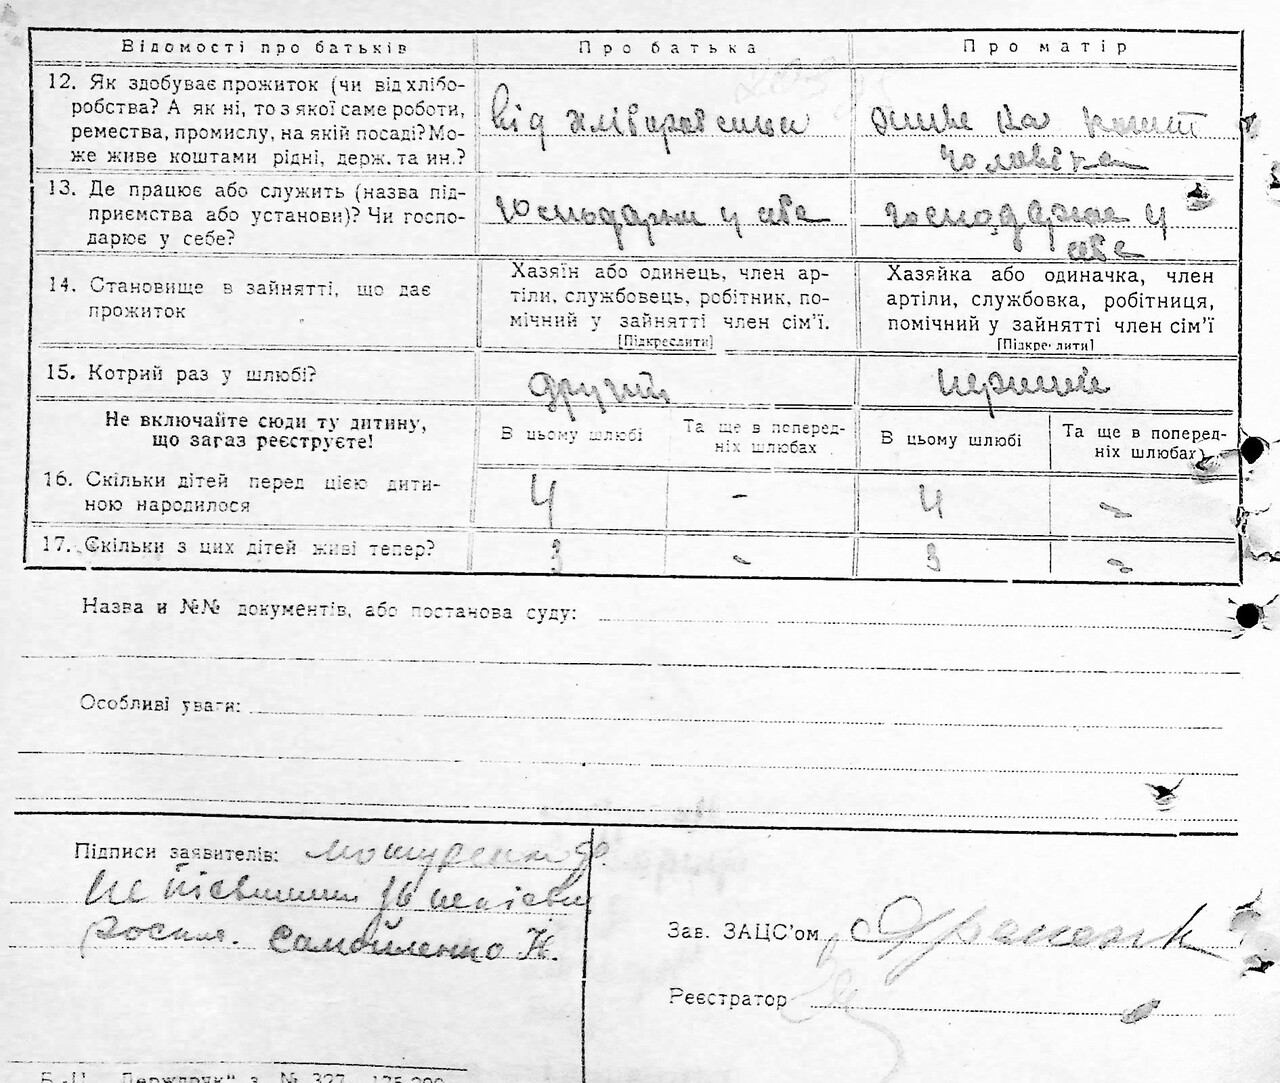 Відомості про батьків
Про батька
Про матір
12. Як здобуває прожиток (чи від хлібо-
робства? А як ні, то з якої саме роботи,
ремества, промислу, на якій посаді? Мо-
же живе коштами рідні, держ. та ин.?
від хліборобства
живе на кошт
чоловіка
13. Де працює або служить (назва під-
приємства або установи)? Чи госпо-
дарює у себе?
господарює у себе
господарює у
себе
14. Становище в зайнятті, що дає
прожиток
Хазяїн або одинець, член ар-
тіли, службовець, робітник, по-
мічний у зайнятті член сім'ї.
[Підкреслити]
Хазяйка або одиначка, член
артіли, службовка, робітниця,
помічний у зайнятті член сім'ї
[Підкреслити]
15. Котрий раз у шлюбі?
другий
перший
Не включайте сюди ту дитину,
що загаз реєструєте!
В цьому шлюбі
Та ще в поперед-
ніх шлюбах.
В цьому шлюбі
Та ще в поперед-
ніх шлюбах)
16. Скільки дітей перед цією дити-
ною народилося
4
-
4
-
17. Скільки з цих дітей живі тепер?
3
-
3
-
Назва и №№ документів, або постанова суду:
Особливі уваги:
Підписи заявителів:
Самойленко Н.
Зав. ЗАЦС'ом
Реєстратор
Держдрук" з. № 327